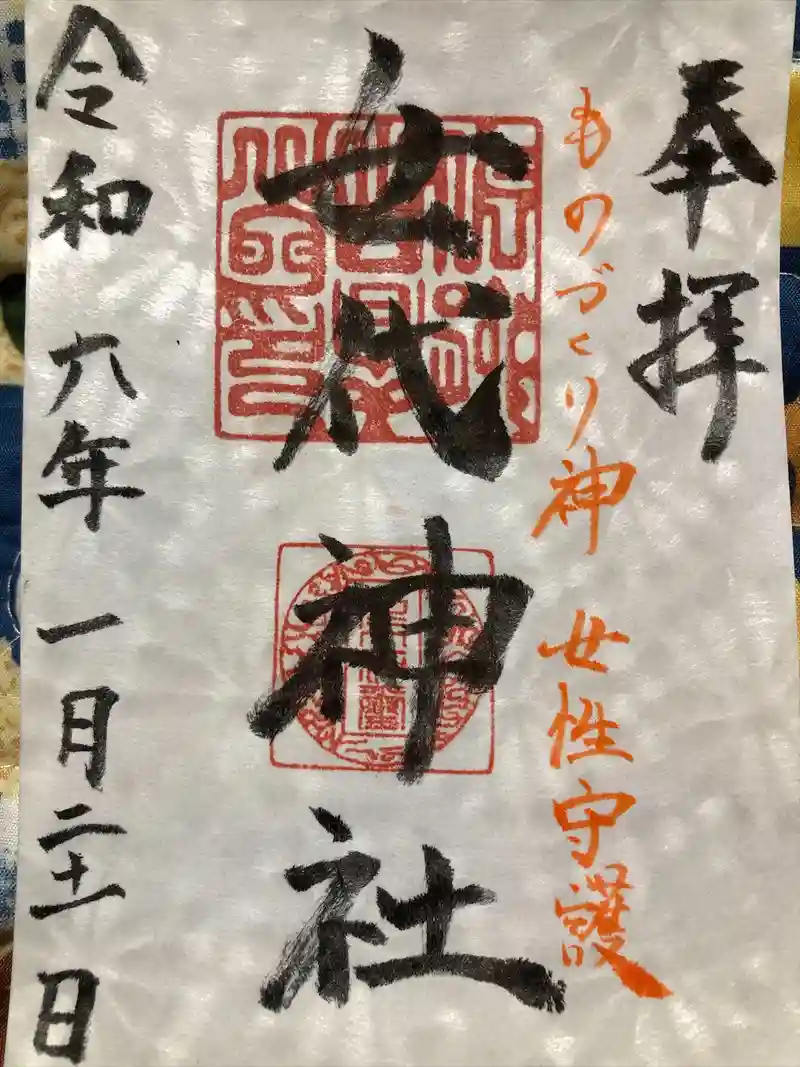 奉拝
ものづくり神 女性守護
女代神社
令和六年一月二十一日